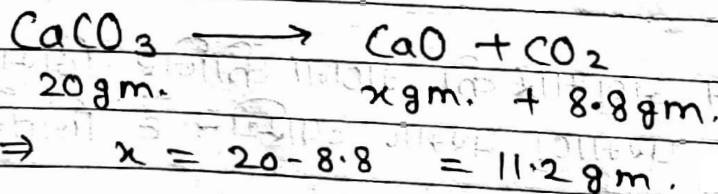 CaCO₃ ⟶ CaO + CO₂
20gm. xgm. + 8.8gm.
⇒ x = 20-8.8 = 11.2gm.